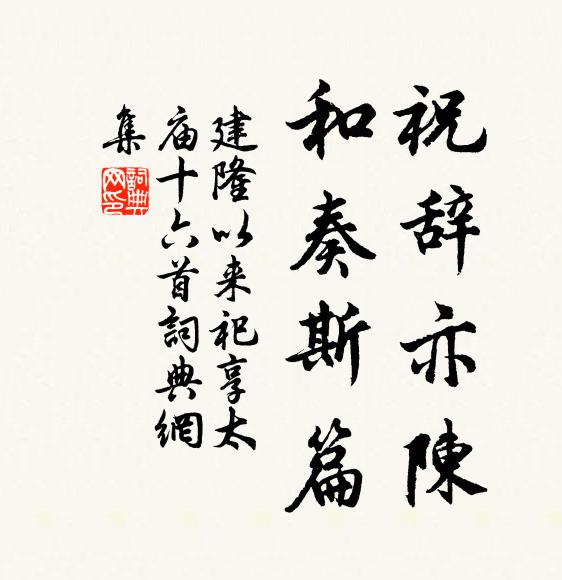 祝辞亦陳
和奏斯篇
建隆以来祀享太
庙十六首詞典網
集
詞典网印